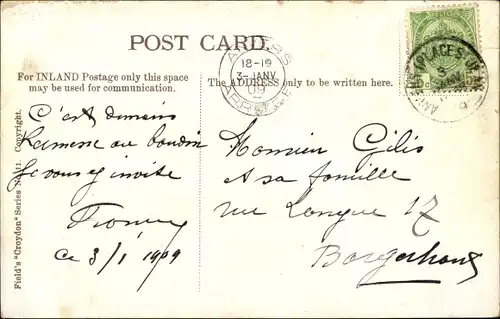 POST CARD.
For INLAND Postage only this space
may be used for communication.
The ADDRESS only to be written here.
18-19
3-JANV
09
C'est demain
Kermesse au boudin
Je vous y invite
ce 3/1 1909
Monsieur Gilis
et sa famille
rue Longue 17
Borgerhout
Field's "Croydon" Series No. 11. Copyright.